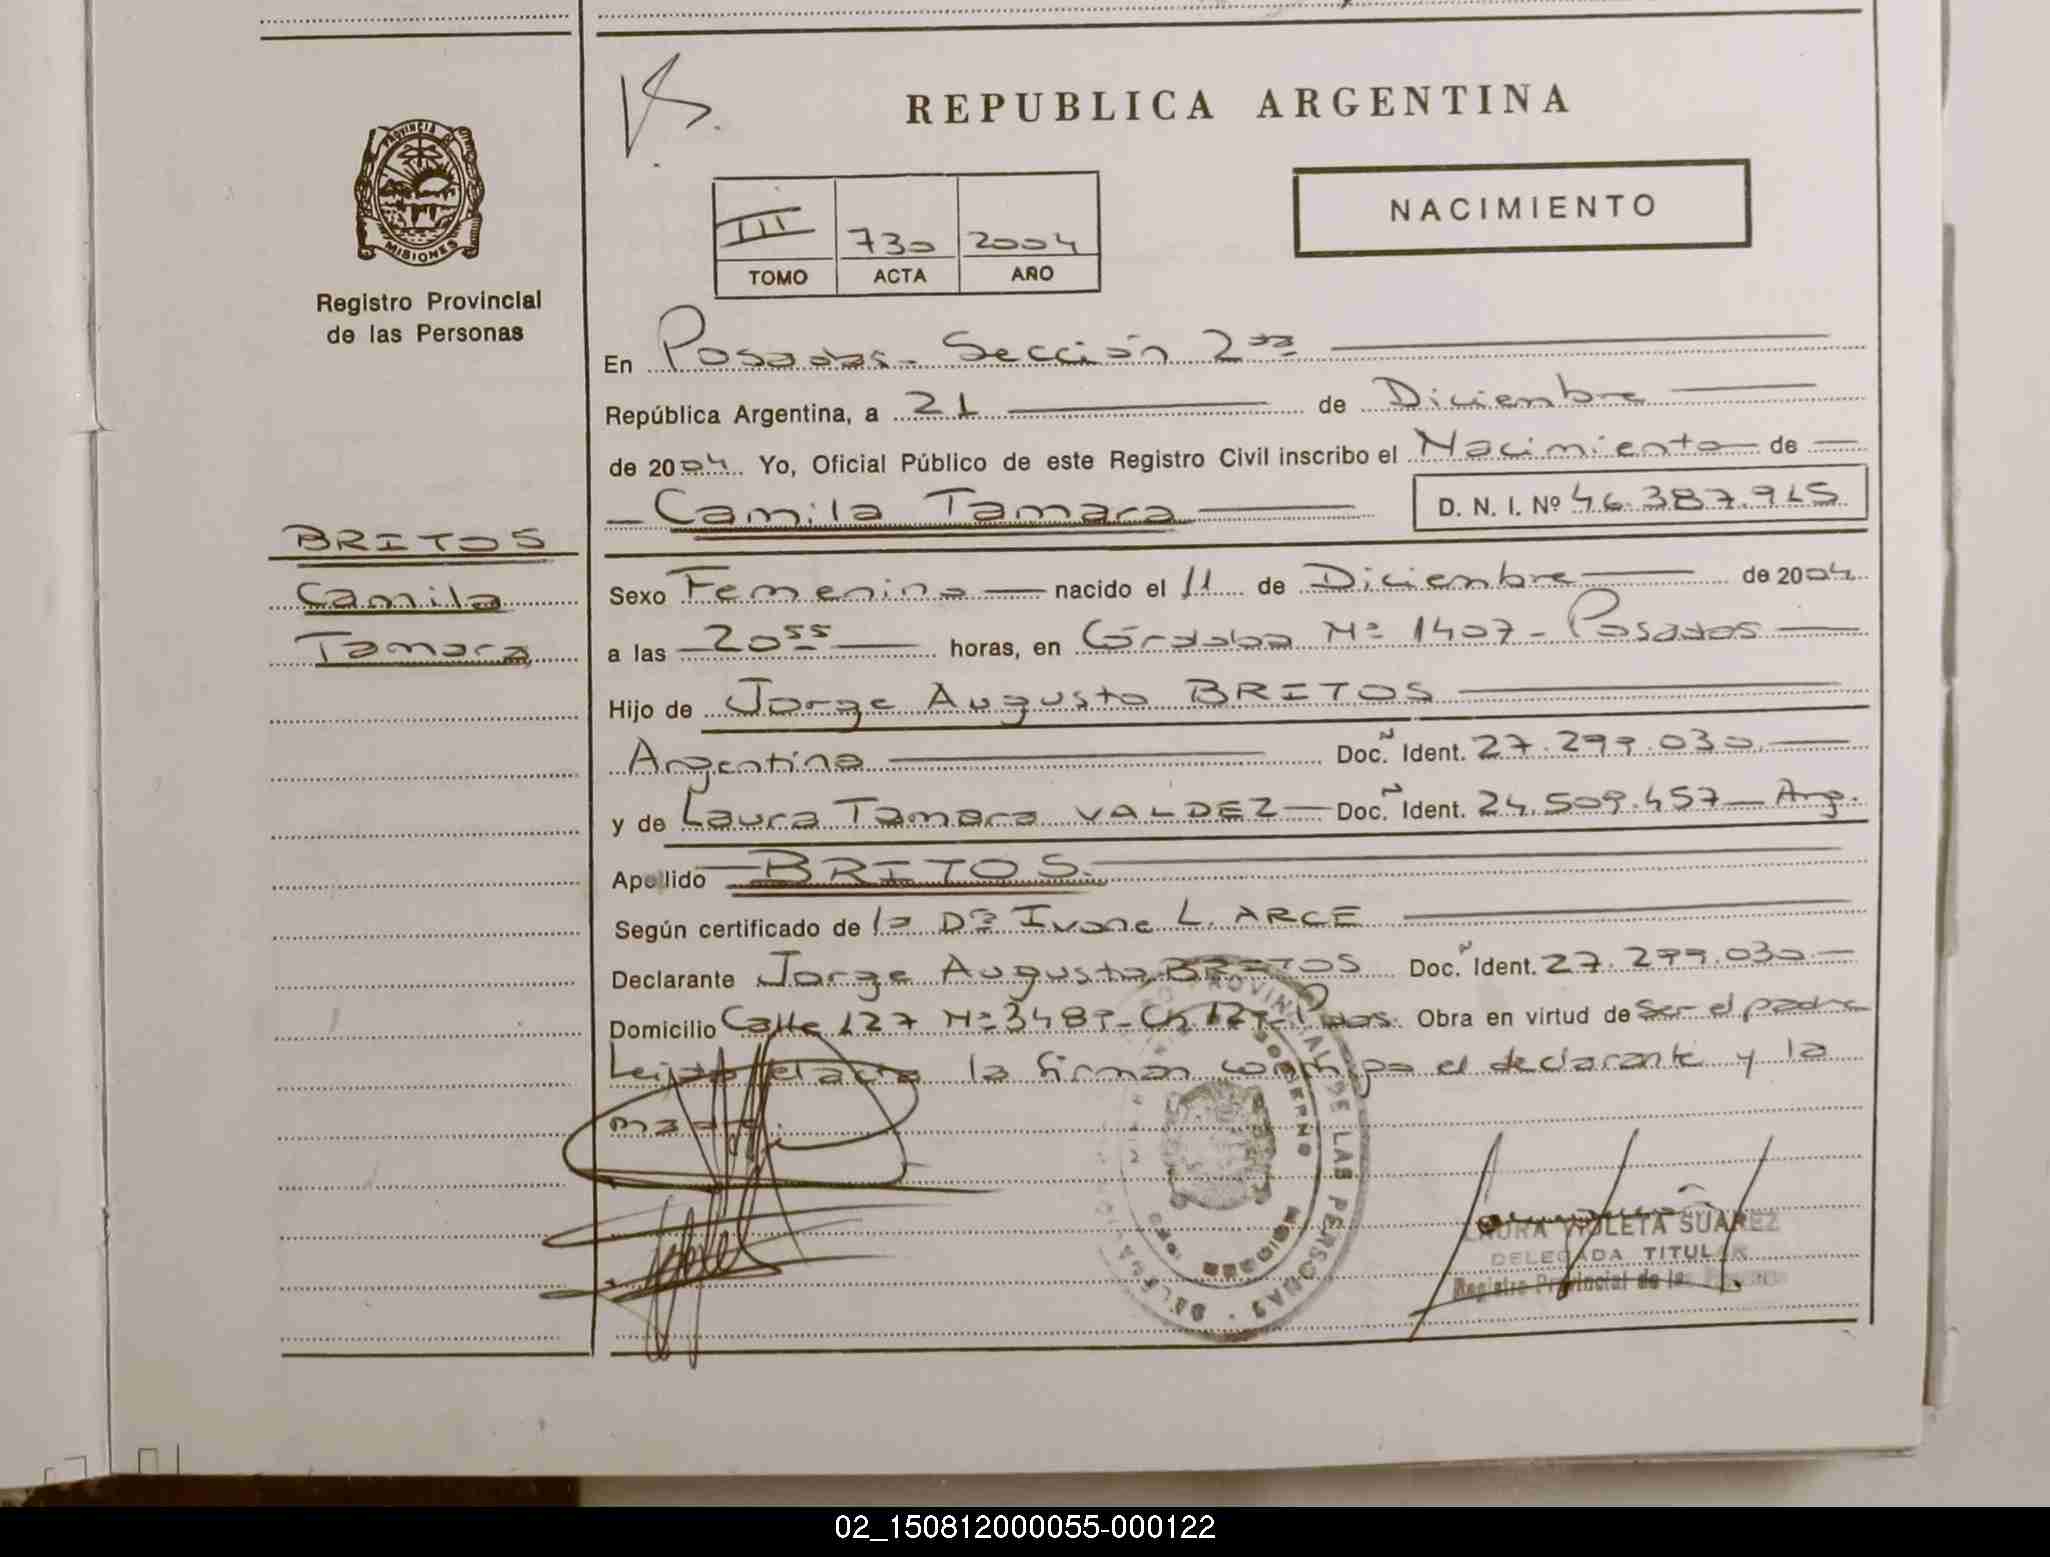 REPUBLICA ARGENTINA
PROVINCIA DE
MISIONES
Registro Provincial
de las Personas
NACIMIENTO
III 730 2004
TOMO ACTA AÑO
En Posadas - Sección 2da
República Argentina, a 21 de Diciembre
de 2004 Yo, Oficial Público de este Registro Civil inscribo el Nacimiento de
Camila Tamara D. N. I. Nº 46.387.915
BRITOS
Camila
Tamara
Sexo Femenino nacido el 11 de Diciembre de 2004
a las 20 55 horas, en Córdoba Nº 1407 - Posadas
Hijo de Jorge Augusto BRITOS
Argentina Doc. Ident. 27.299.030
y de Laura Tamara VALDEZ Doc. Ident. 24.509.457 - Arg.
Apellido BRITOS.
Según certificado de la Dra Ivone L. ARCE
Declarante Jorge Augusto BRITOS Doc. Ident. 27.299.030
Domicilio Calle 127 Nº 3489 - Ch 127 - Pdas. Obra en virtud de ser el padre
Leída el acta la firman conmigo el declarante y la
madre.
PROVINCIAL DE LAS PERSONAS
GOBIERNO
MISIONES
LAURA VIOLETA SUAREZ
DELEGADA TITULAR
Registro Provincial de las Personas
02_150812000055-000122